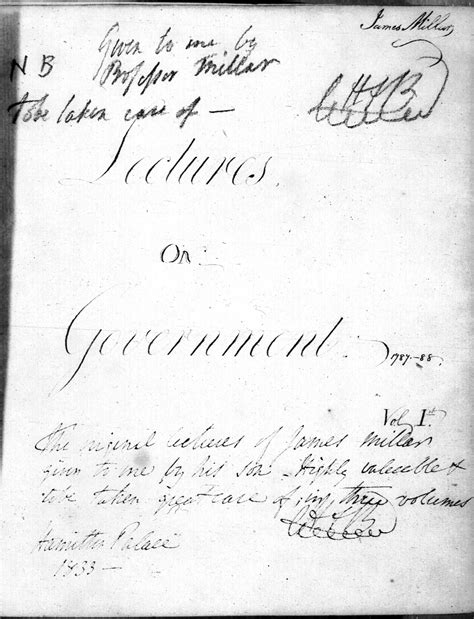 James Millar
Given to me by
N B Professor Millar
to be taken care of —
H & B
Lectures
On
Government. 1787-88.
Vol. 1st
The original lectures of James Millar
given to me by his son. Highly valuable &
to be taken great care of; in three volumes
H & B
Hamilton Palace
1833 —